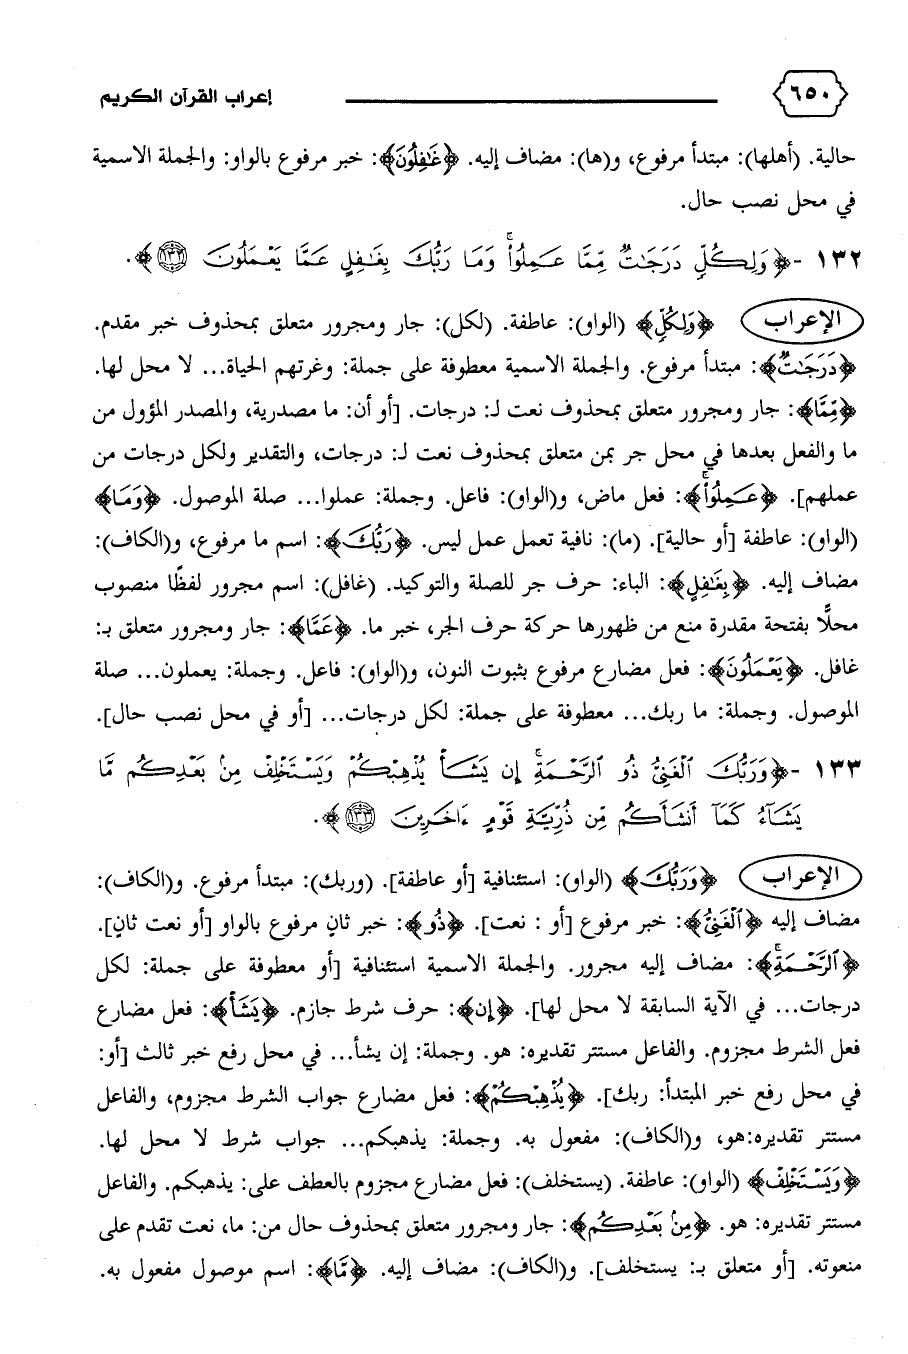 ٦٥٠ إعراب القرآن الكريم
حالية. (أهلها): مبتدأ مرفوع، و(ها): مضاف إليه. ﴿غَٰفِلُونَ﴾: خبر مرفوع بالواو: والجملة الاسمية
في محل نصب حال.
١٣٢ -﴿وَلِكُلٍّ دَرَجَٰتٌ مِّمَّا عَمِلُوا۟ ۚ وَمَا رَبُّكَ بِغَٰفِلٍ عَمَّا يَعْمَلُونَ ١٣٢﴾.
الإعراب ﴿وَلِكُلٍّ﴾ (الواو): عاطفة. (لكل): جار ومجرور متعلق بمحذوف خبر مقدم.
﴿دَرَجَٰتٌ﴾: مبتدأ مرفوع. والجملة الاسمية معطوفة على جملة: وغرتهم الحياة... لا محل لها.
﴿مِّمَّا﴾: جار ومجرور متعلق بمحذوف نعت لـ: درجات. [أو أن: ما مصدرية، والمصدر المؤول من
ما والفعل بعدها في محل جر بمن متعلق بمحذوف نعت لـ: درجات، والتقدير ولكل درجات من
عملهم]. ﴿عَمِلُوا۟ ۚ﴾: فعل ماض، و(الواو): فاعل. وجملة: عملوا... صلة الموصول. ﴿وَمَا﴾
(الواو): عاطفة [أو حالية]. (ما): نافية تعمل عمل ليس. ﴿رَبُّكَ﴾: اسم ما مرفوع، و(الكاف):
مضاف إليه. ﴿بِغَٰفِلٍ﴾: الباء: حرف جر للصلة والتوكيد. (غافل): اسم مجرور لفظًا منصوب
محلًّا بفتحة مقدرة منع من ظهورها حركة حرف الجر، خبر ما. ﴿عَمَّا﴾: جار ومجرور متعلق بـ:
غافل. ﴿يَعْمَلُونَ﴾: فعل مضارع مرفوع بثبوت النون، و(الواو): فاعل. وجملة: يعملون... صلة
الموصول. وجملة: ما ربك... معطوفة على جملة: لكل درجات... [أو في محل نصب حال].
١٣٣ -﴿وَرَبُّكَ ٱلْغَنِىُّ ذُو ٱلرَّحْمَةِ ۚ إِن يَشَأْ يُذْهِبْكُمْ وَيَسْتَخْلِفْ مِنۢ بَعْدِكُم مَّا
يَشَآءُ كَمَآ أَنشَأَكُم مِّن ذُرِّيَّةِ قَوْمٍ ءَاخَرِينَ ١٣٣﴾.
الإعراب ﴿وَرَبُّكَ﴾ (الواو): استئنافية [أو عاطفة]. (وربك): مبتدأ مرفوع. و(الكاف):
مضاف إليه ﴿ٱلْغَنِىُّ﴾: خبر مرفوع [أو : نعت]. ﴿ذُو﴾: خبر ثانٍ مرفوع بالواو [أو نعت ثان].
﴿ٱلرَّحْمَةِ ۚ﴾: مضاف إليه مجرور. والجملة الاسمية استئنافية [أو معطوفة على جملة: لكل
درجات... في الآية السابقة لا محل لها]. ﴿إِن﴾: حرف شرط جازم. ﴿يَشَأْ﴾: فعل مضارع
فعل الشرط مجزوم. والفاعل مستتر تقديره: هو. وجملة: إن يشأ... في محل رفع خبر ثالث [أو:
في محل رفع خبر المبتدأ: ربك]. ﴿يُذْهِبْكُمْ﴾: فعل مضارع جواب الشرط مجزوم، والفاعل
مستتر تقديره:هو، و(الكاف): مفعول به. وجملة: يذهبكم... جواب شرط لا محل لها.
﴿وَيَسْتَخْلِفْ﴾ (الواو): عاطفة. (يستخلف): فعل مضارع مجزوم بالعطف على: يذهبكم. والفاعل
مستتر تقديره: هو. ﴿مِنۢ بَعْدِكُم﴾: جار ومجرور متعلق بمحذوف حال من: ما، نعت تقدم على
منعوته. [أو متعلق بـ: يستخلف]. و(الكاف): مضاف إليه. ﴿مَّا﴾: اسم موصول مفعول به.